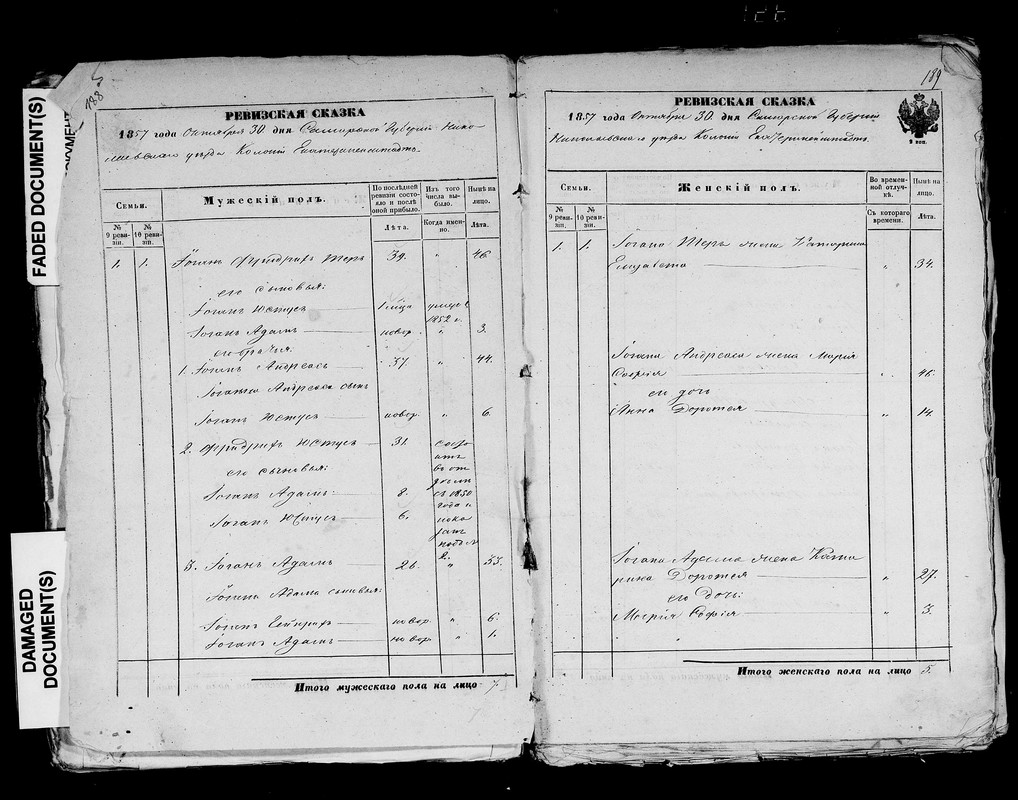 FADED DOCUMENT(S)
DAMAGED
DOCUMENT(S)
188
РЕВИЗСКАЯ СКАЗКА
1857 года Октября 30 дня Самарской Губерніи Нико-
лаевскаго уѣзда Колоніи Екатериненштадтъ
Семьи.
№ 9 ревизіи.
№ 10 ревизіи.
Мужескій полъ.
По послѣдней ревизіи состояло и послѣ оной прибыло.
Лѣта.
Изъ того числа выбыло.
Когда именно.
Нынѣ на лицо.
Лѣта.
1. 1. Іоганъ Фридрихъ 39. " 46
его сыновья:
Іоганъ Юстусъ 1852 г.
Іоганъ Адамъ новор. " 3.
его братья:
1. Іоганъ Андреасъ 37. " 44.
Іогана Андреаса сынъ
Іоганъ Юстусъ новор. " 6.
2. Фридрихъ Юстусъ 31.
его сыновья:
Іоганъ Адамъ 8.
Іоганъ Юстусъ 6.
съ 1850
года и
пока
заны
подъ №
2.
3. Іоганъ Адамъ 26. " 33.
Іогана Адама сыновья:
Іоганъ новор. " 6.
Іоганъ Адамъ новор. " 1.
Итого мужескаго пола на лицо 7.
189
РЕВИЗСКАЯ СКАЗКА
1857 года Октября 30 дня Самарской Губерніи
Николаевскаго уѣзда Колоніи Екатериненштадтъ.
Семьи.
№ 9 ревизіи.
№ 10 ревизіи.
Женскій полъ.
Во временной отлучкѣ.
Съ котораго времени.
Нынѣ на лицо.
Лѣта.
1. 1. Іогана жена Катарина
Елизавета " 34.
Іогана Андреаса жена Марія
Софія " 46.
его дочь
Анна Доротея " 14.
Іогана Адама жена Ката
рина Доротея " 27.
его дочь:
Марія Софія " 3.
Итого женскаго пола на лицо 5.